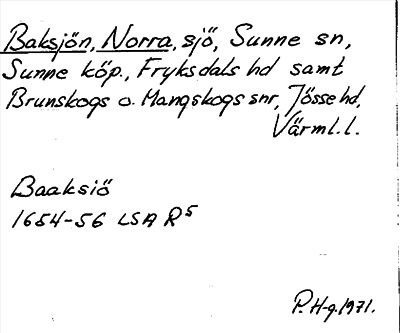 Baksjön, Norra, sjö, Sunne sn,
Sunne köp., Fryksdals hd samt
Brunskogs o. Mangskogs snr, Jösse hd,
Värml. l.
Baaksiö
1654-56 LSA R5
P. H-g. 1971.